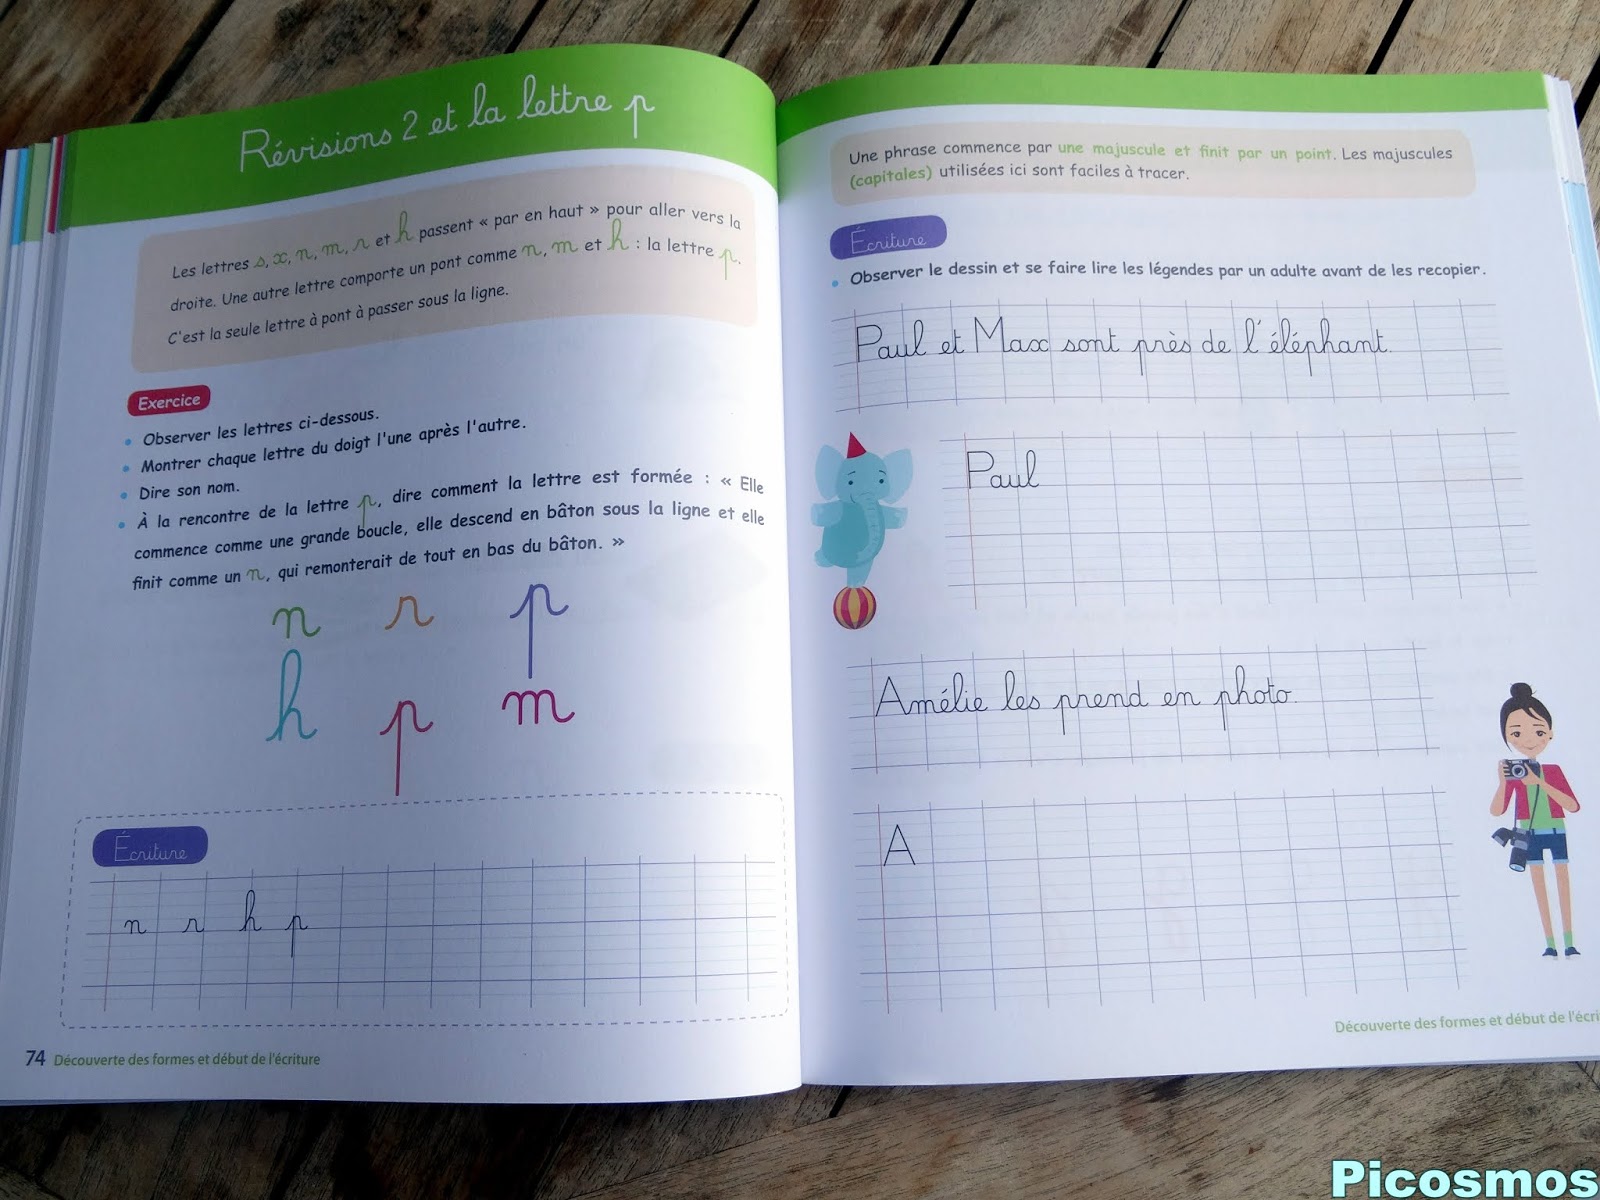 Révisions 2 et la lettre p
Les lettres s, x, n, m, r et h passent « par en haut » pour aller vers la
droite. Une autre lettre comporte un pont comme n, m et h : la lettre p.
C'est la seule lettre à pont à passer sous la ligne.
Exercice
• Observer les lettres ci-dessous.
• Montrer chaque lettre du doigt l'une après l'autre.
• Dire son nom.
• À la rencontre de la lettre p, dire comment la lettre est formée : « Elle
commence comme une grande boucle, elle descend en bâton sous la ligne et elle
finit comme un n, qui remonterait de tout en bas du bâton. »
n r p
h p m
Écriture
n r h p
74 Découverte des formes et début de l'écriture
Une phrase commence par une majuscule et finit par un point. Les majuscules
(capitales) utilisées ici sont faciles à tracer.
Écriture
• Observer le dessin et se faire lire les légendes par un adulte avant de les recopier.
Paul et Max sont près de l'éléphant.
Paul
Amélie les prend en photo.
A
Découverte des formes et début de l'écri
Picosmos